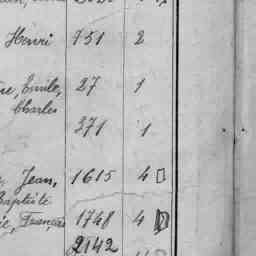 Henri 751 2
Emile, 27 1
Charles
371 1
Jean, 1615 4
Baptiste
François 1748 4
2142